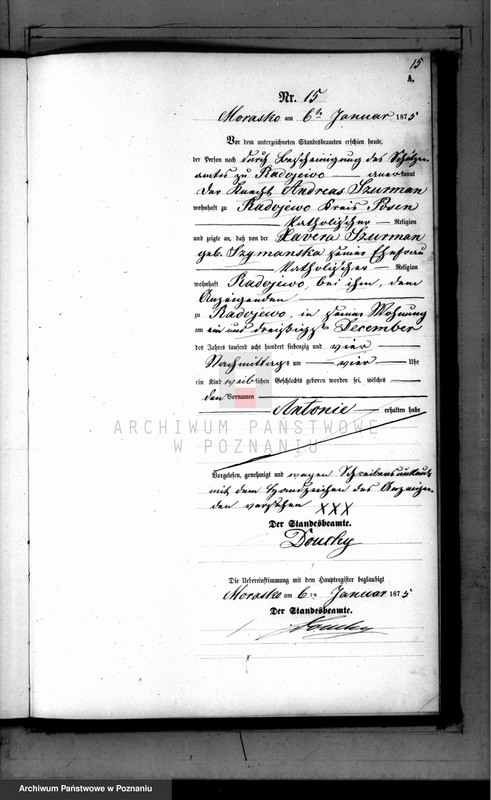 15
A.
Nr. 15
Morasko am 6ten Januar 1875
Vor dem unterzeichneten Standesbeamten erschien heute,
der Person nach durch Bescheinigung des Schulzen-
amtes zu Radojewo anerkannt
Der Knecht Andreas Szurman
wohnhaft zu Radojewo Kreis Posen
katholischer Religion
und zeigte an, daß von der Xavera Szurman
geb. Szymanska seiner Ehefrau
katholischer Religion
wohnhaft Radojewo, bei ihm, dem
Anzeigenden
zu Radojewo, in seiner Wohnung
am ein und dreißigsten December
des Jahres tausend acht hundert siebenzig und vier
Nachmittags um vier Uhr
ein Kind weiblichen Geschlechts geboren worden sei, welches
den Vornamen
Antonie erhalten habe
ARCHIWUM PAŃSTWOWE
W POZNANIU
Vorgelesen, genehmigt und wegen Schreibensunkunde
mit dem Handzeichen des Anzeigen-
den versehen XXX
Der Standesbeamte.
Douchy
Die Uebereinstimmung mit dem Hauptregister beglaubigt
Morasko am 6ten Januar 1875
Der Standesbeamte.
Douchy
Archiwum Państwowe w Poznaniu